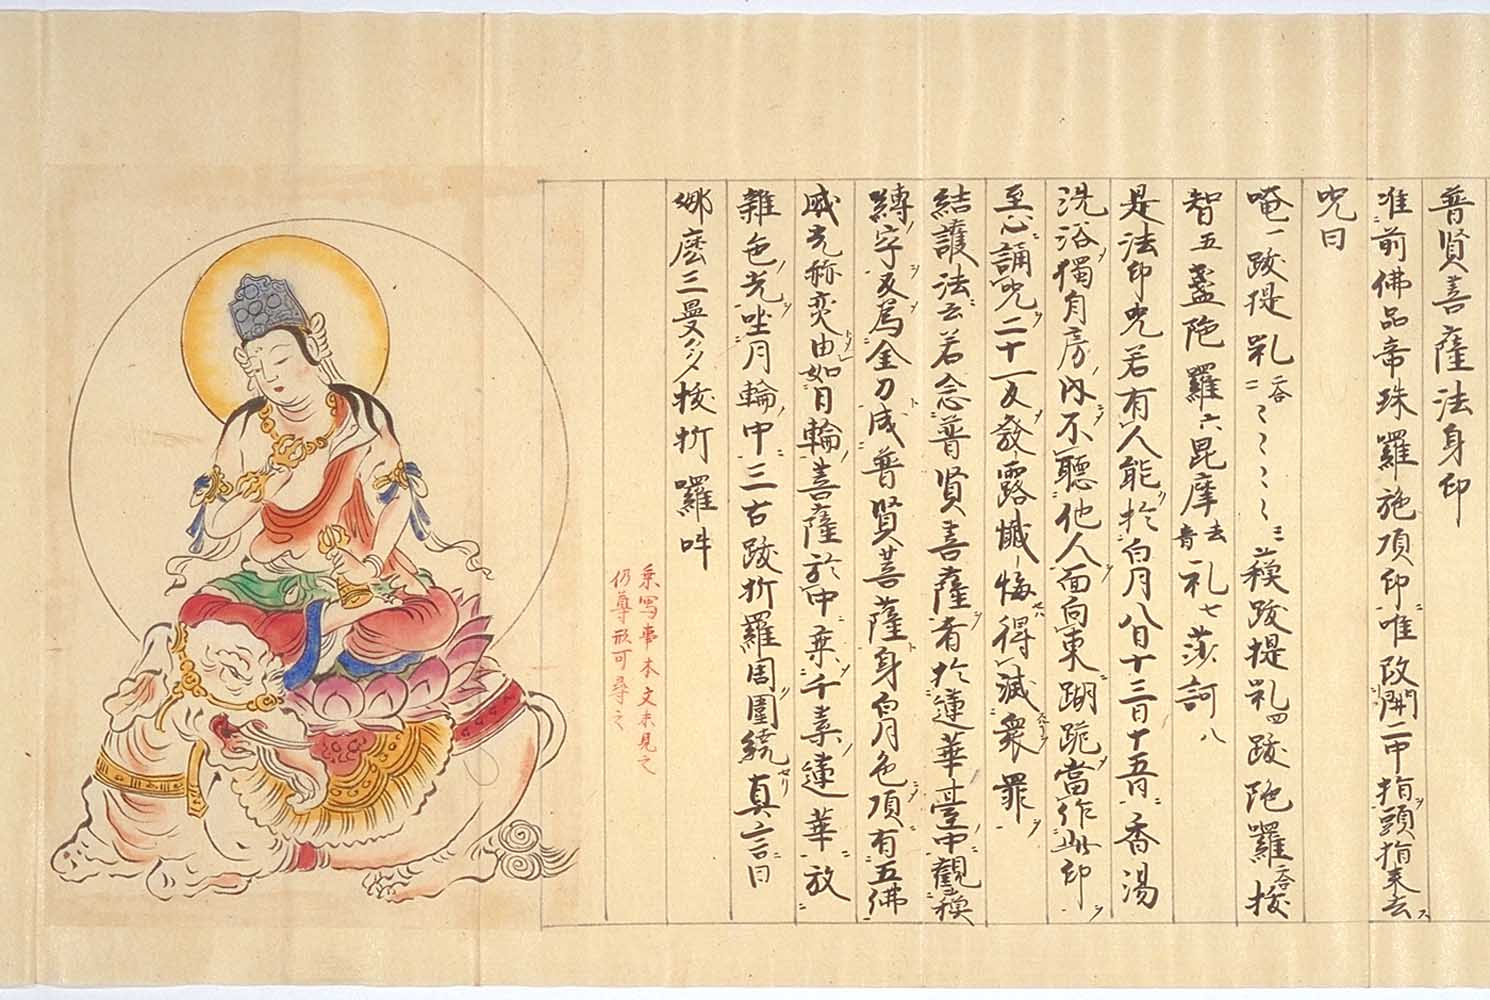 普賢菩薩法身印
准前佛品帝珠羅施頂印唯改開二中指頭指来去
呪曰
唵一跋提㘑二合二〻〻〻〻三蘓跋提㘑四跋陁囉二合拔
智五盞陁羅六毘摩去音礼七莎訶八
是法印呪若有人能於白月八日十三日十五日香湯
洗浴獨自房内不聽他人面向東蹦跪當作此印
至心誦呪二十一反發露懺悔得滅衆罪
結護法云若念普賢菩薩者於蓮華臺中觀穢
縛字反爲金刀成普賢菩薩身白月色項有五佛
威光稱奕由如日輪菩薩於中乘千素蓮華放
雜色光坐月輪中三古跋折羅周圍繞真言曰
娜麽三曼多拔折囉吽
乗寫事本文未見之
仍尊形可尋之